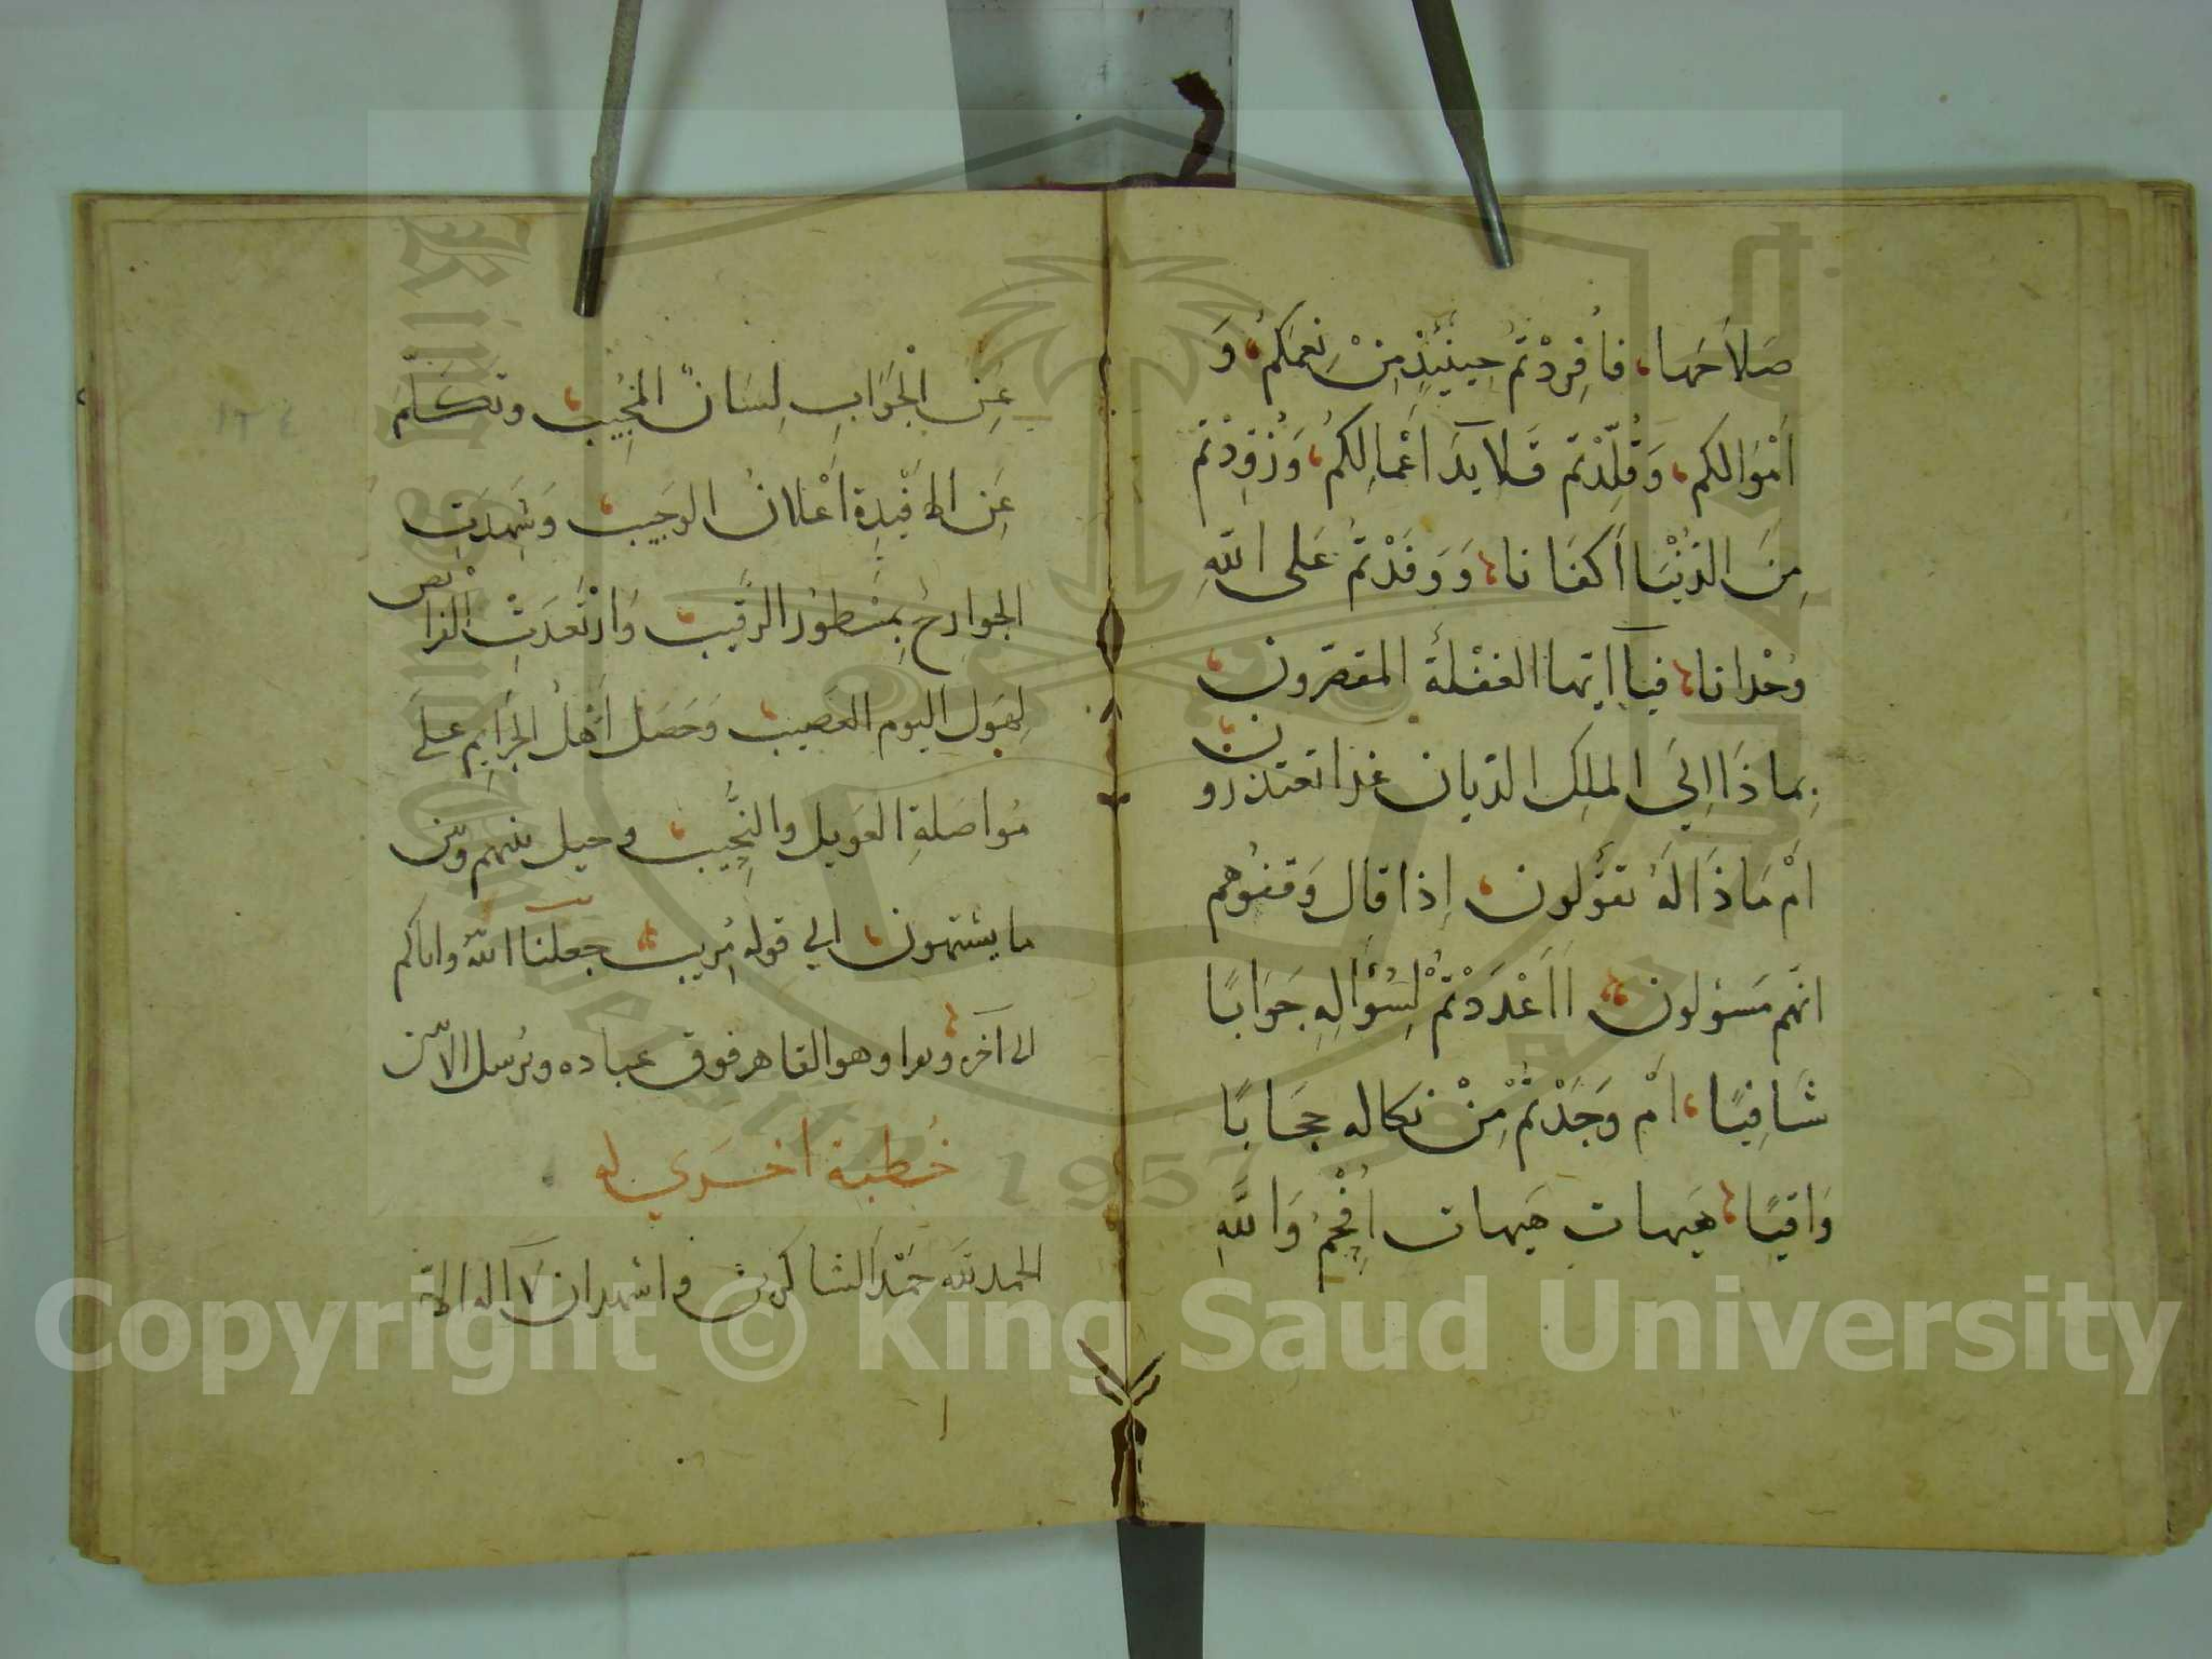 صَلاَحَها، فأُفرِدْتُم حِينَئِذٍ مِنْ نِعَمِكُم، وَ
اَمْوَالكم، وَقُلِّدْتم قَلايدَ اَعْمالِكُم، وَزُوِّدْتم
مِنَ الدّنْيَا اَكفَانا، وَوَفَدْتُم عَلى اللّهِ
وُحْدانا، فيآ ايّها الغفْلَة المقصّرون،
بِماذَا اِلىَ الملِكِ الديّان غدا تعتذرون
اَمْ مَاذَا لَهُ تقوَلون، إذا قال وَقفوُهم
انّهم مَسؤلون، أاَعْدَدْتمْ لِسُؤَالِهِ جَوَابًا
شَافِيًا، اَمْ وَجَدْتُمْ مِنْ نكاله حجَابًا
وَاقيًا، هَيهات هَيهات اُفْحِمُ وَاللّهِ
عَنِ الْجَوَابِ لِسَانُ المُجِيبِ، وتكلّمَ
عَنِ الافْيِدةِ اَعْلانُ الوَجيب، وَشَهِدَتِ
الجوارحُ بِمَسْطوُر الرّقيب، وَارْتَعدَتِ الفرائص
لِهَوْلِ اليوم العَصيب، وَحَصَلَ اَهْلُ الجَرَايِم علَى
مُواصَلةِ العَويل والنّحِيب، وحيل بينهم وبين
ما يشتهون، الى قوله مُريب، جعلنا اللّه واياكم
الى آخره وهو القاهر فوق عباده ويُرسل
خُطبة اخرى له
الحمد للّه حَمْدَ الشاكرين واشهد ان لآ اله الا
١٢٤
Copyright © King Saud University
King Saud University
1957